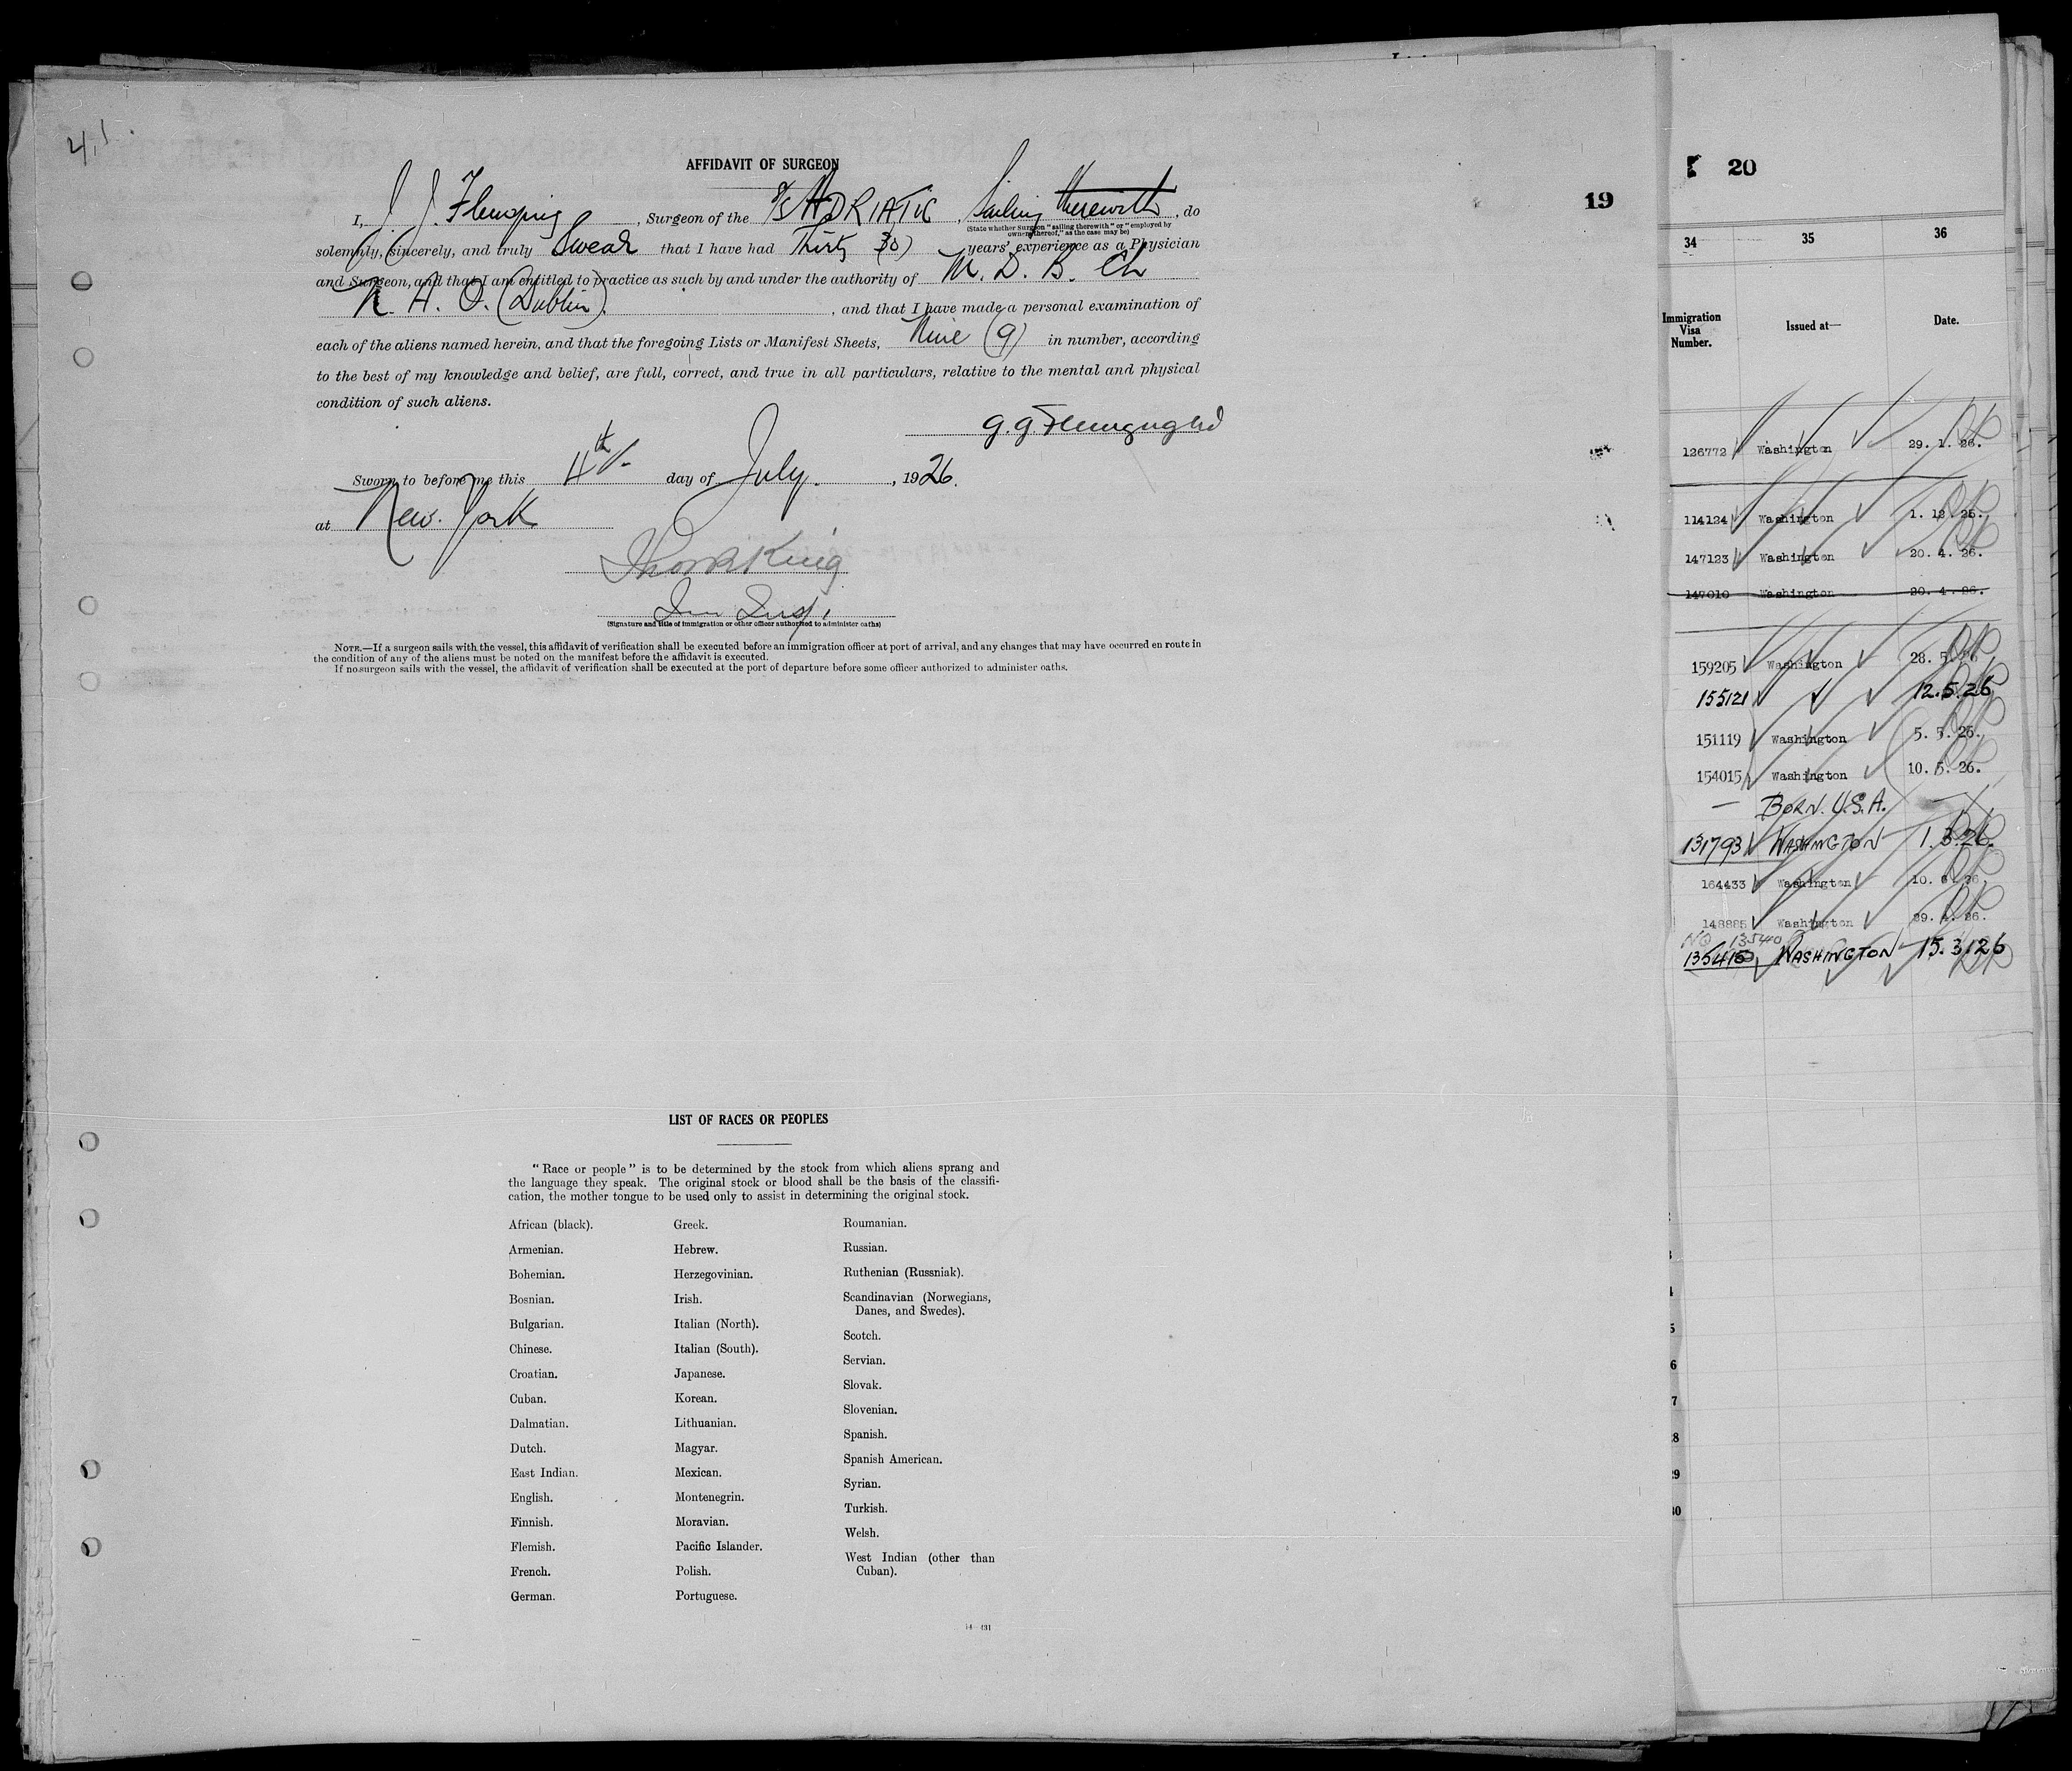 4,1.
AFFIDAVIT OF SURGEON
19
I, J. J. Fleming, Surgeon of the S/S ADRIATIC, Sailing therewith, do
(State whether Surgeon "sailing therewith" or "employed by
owners thereof," as the case may be)
solemnly, sincerely, and truly Swear that I have had Thirty (30) years' experience as a Physician
and Surgeon, and that I am entitled to practice as such by and under the authority of M. D. B. Ch
(Dublin), and that I have made a personal examination of
each of the aliens named herein, and that the foregoing Lists or Manifest Sheets, Nine (9) in number, according
to the best of my knowledge and belief, are full, correct, and true in all particulars, relative to the mental and physical
condition of such aliens.
Sworn to before me this 4th day of July, 1926.
at New York
King
Imm Insp.
(Signature and title of immigration or other officer authorized to administer oaths)
NOTE.—If a surgeon sails with the vessel, this affidavit of verification shall be executed before an immigration officer at port of arrival, and any changes that may have occurred en route in
the condition of any of the aliens must be noted on the manifest before the affidavit is executed.
If no surgeon sails with the vessel, the affidavit of verification shall be executed at the port of departure before some officer authorized to administer oaths.
LIST OF RACES OR PEOPLES
"Race or people" is to be determined by the stock from which aliens sprang and
the language they speak. The original stock or blood shall be the basis of the classifi-
cation, the mother tongue to be used only to assist in determining the original stock.
African (black).
Armenian.
Bohemian.
Bosnian.
Bulgarian.
Chinese.
Croatian.
Cuban.
Dalmatian.
Dutch.
East Indian.
English.
Finnish.
Flemish.
French.
German.
Greek.
Hebrew.
Herzegovinian.
Irish.
Italian (North).
Italian (South).
Japanese.
Korean.
Lithuanian.
Magyar.
Mexican.
Montenegrin.
Moravian.
Pacific Islander.
Polish.
Portuguese.
Roumanian.
Russian.
Ruthenian (Russniak).
Scandinavian (Norwegians,
Danes, and Swedes).
Scotch.
Servian.
Slovak.
Slovenian.
Spanish.
Spanish American.
Syrian.
Turkish.
Welsh.
West Indian (other than
Cuban).
14—431
20
34 35 36
Immigration
Visa
Number.
Issued at—
Date.
126772 Washington 29. 1. 26.
114124 Washington 1. 12. 25.
147123 Washington 20. 4. 26.
147010 Washington 20. 4. 26.
159205 Washington 28. 5. 26
155121 12.5.26
151119 Washington 5. 5. 26.
154015 Washington 10. 5. 26.
— BORN. U.S.A. —
131793 WASHINGTON 1.3.26.
164433 Washington 10. 6. 26.
148885 Washington 29. 4. 26.
NQ 13540
WASHINGTON 15.3.26